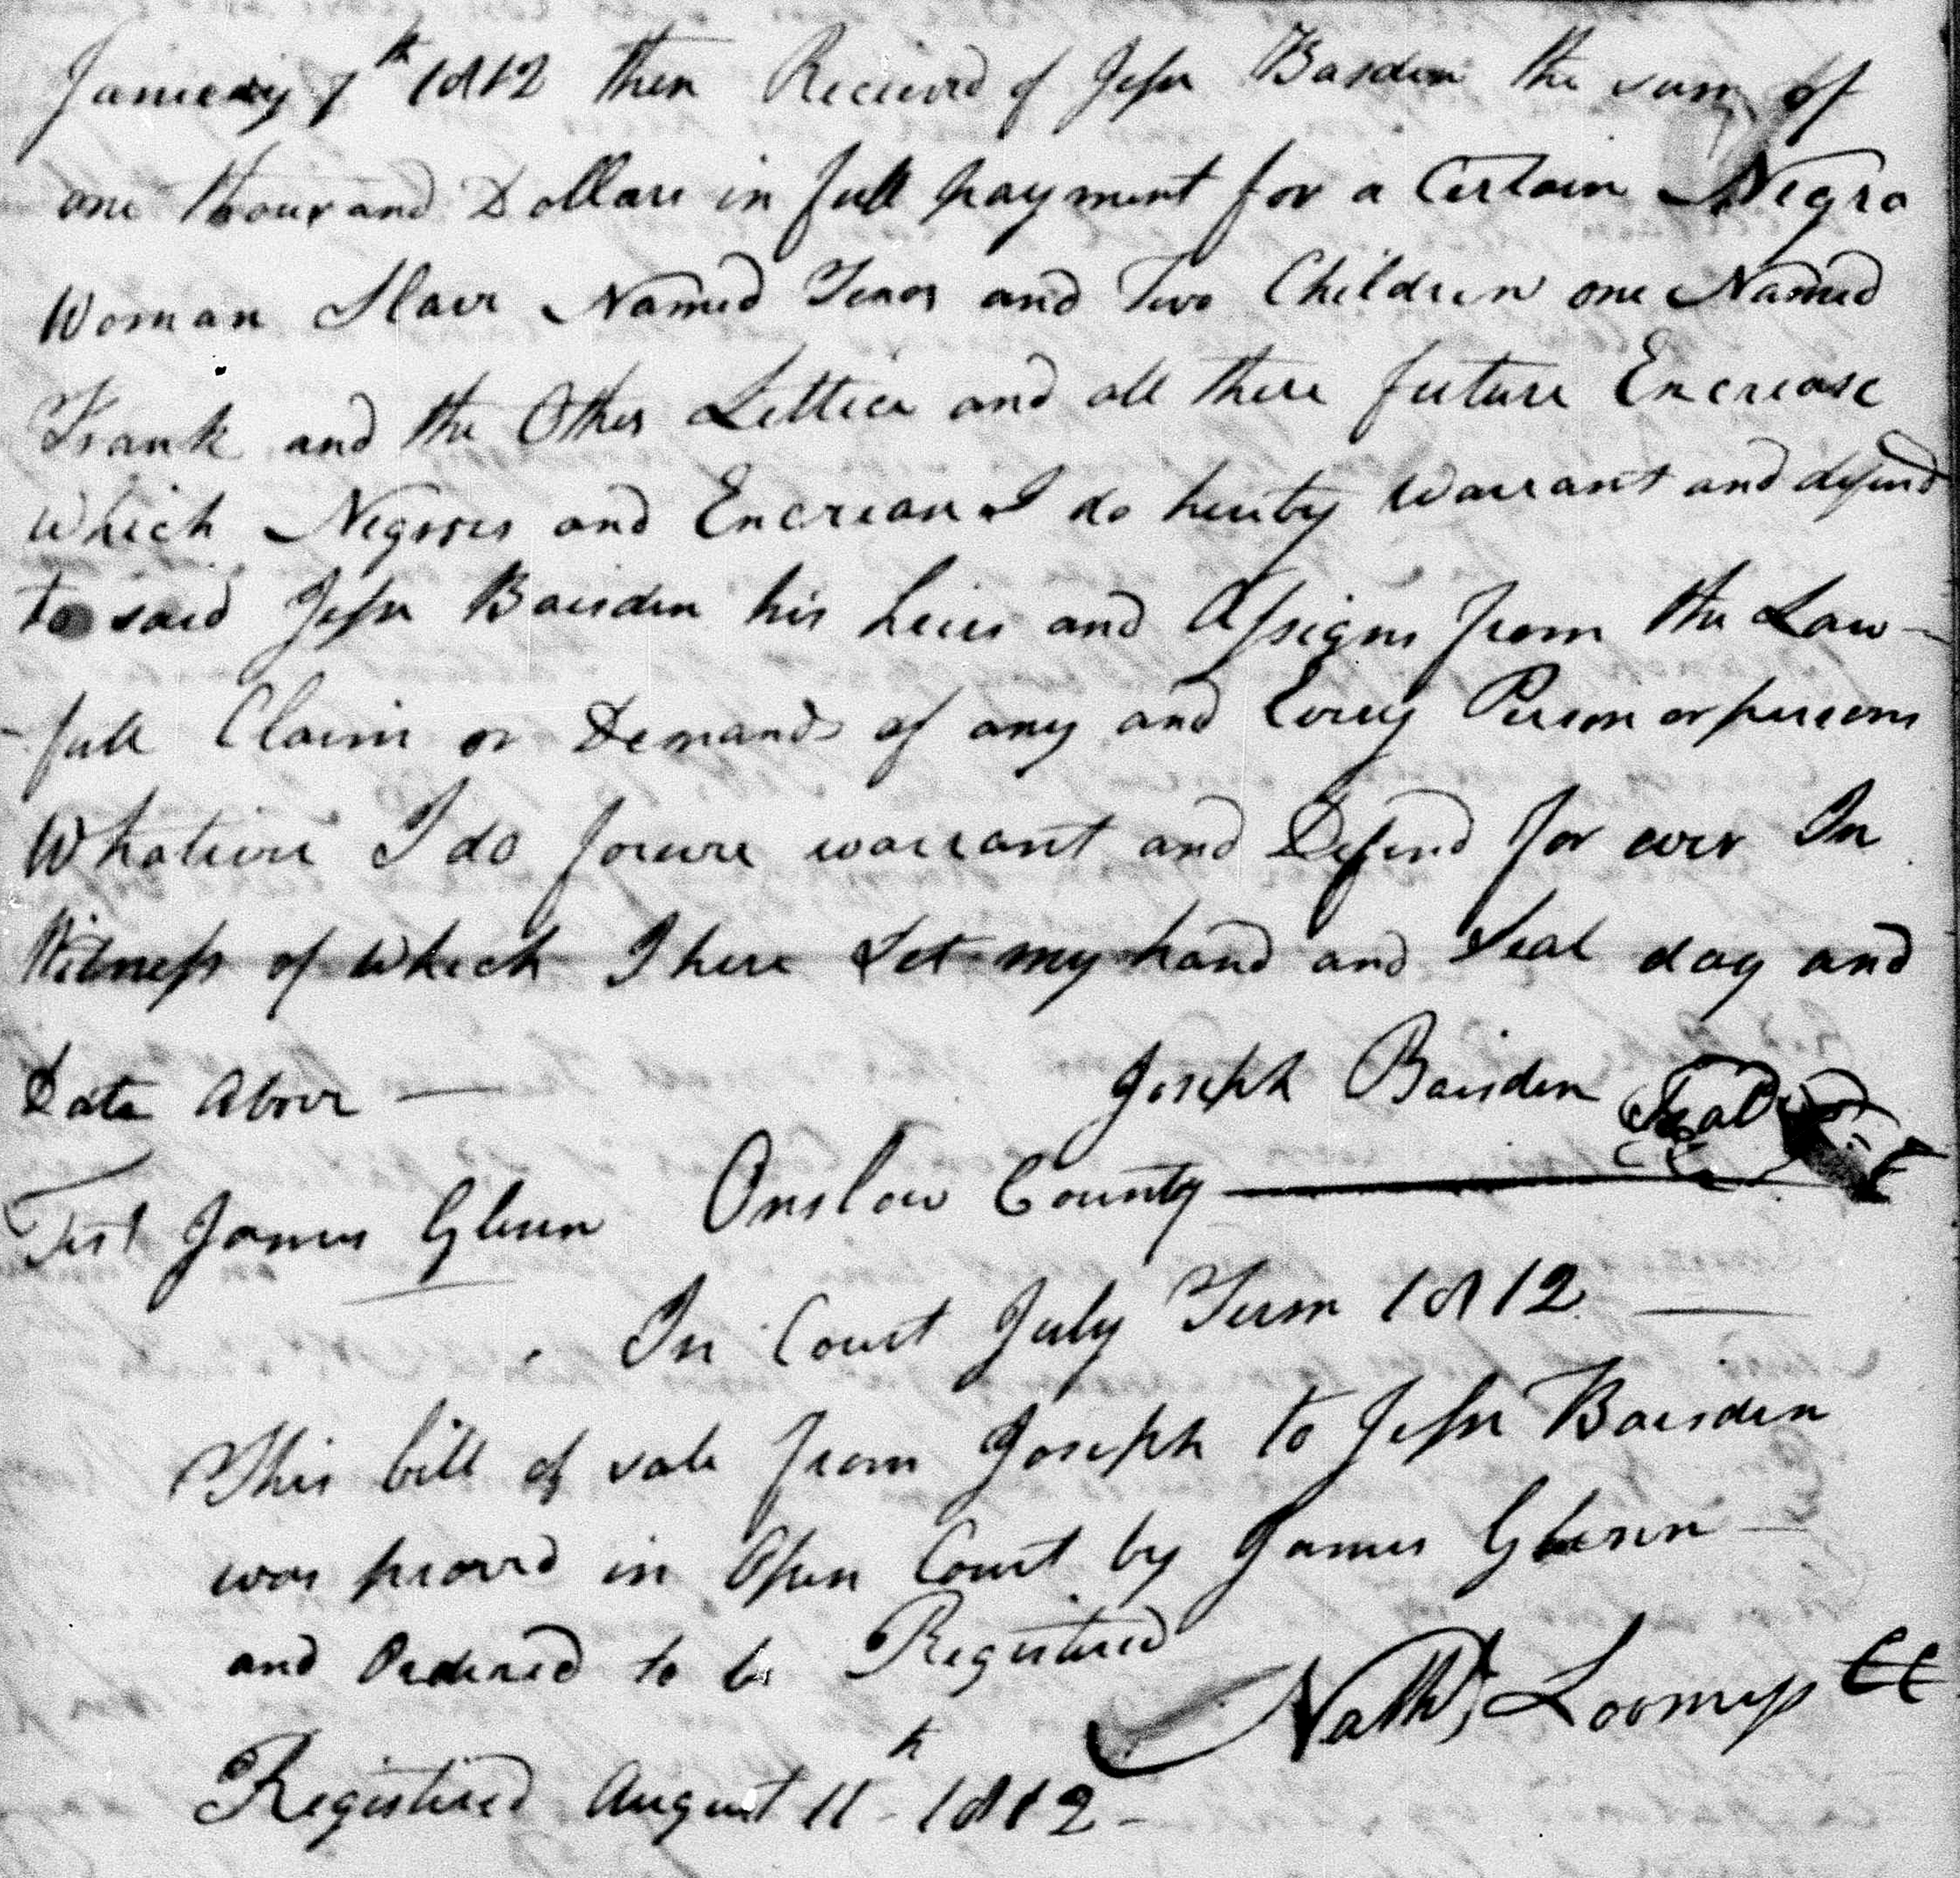 January 7th 1812 then Received of Jesse Basden the sum of
one thousand Dollars in full payment for a Certain Negro
Woman Slave Named Tenor and Two Children one Named
Frank and the Other Lettice and all there future Encrease
Which Negroes and Encrease I do hereby Warrant and defend
to said Jesse Baisden his heirs and Assigns from the Law-
-full Claim or Demands of any and Every Person or persons
Whatever I do forever warrant and Defend for ever In
Witness of which I here Set my hand and Seal day and
Date Above —
Joseph Baisden Seal
Test James Glenn Onslow County
In Court July Term 1812 —
This bill of sale from Joseph to Jesse Baisden
was proved in Open Court by James Glenn —
and Ordered to be Registered
Nath Loomiss CC
Registered August 11th 1812 -